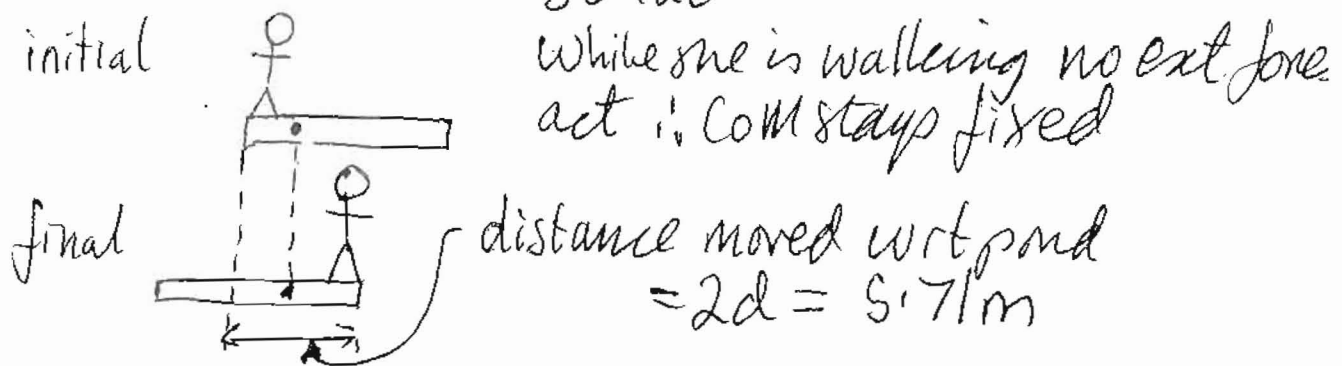 initial
while she is walking no ext force
act ∴ COM stays fixed
final
distance moved wrt pond
= 2d = 5.71m